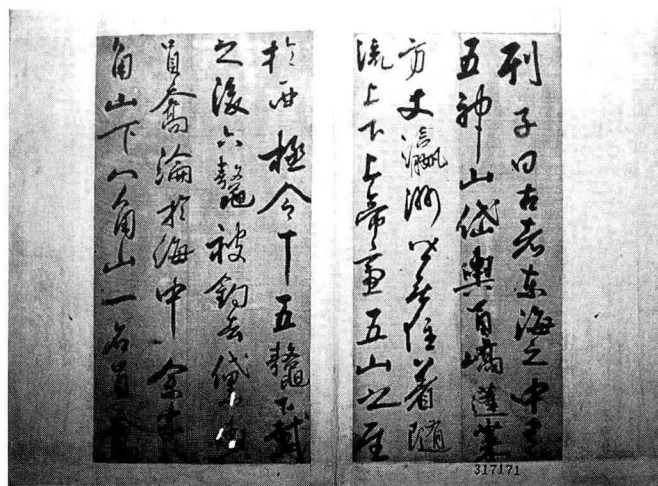 列子曰古者東海之中有
五神山岱輿員嶠蓬萊
方丈瀛洲皆無住着隨
流上下上帝五山之
於西極令十五鼇下戴
之後六鼇被釣去岱輿
員嶠淪於海中余家
角山下八角山一名員
317171